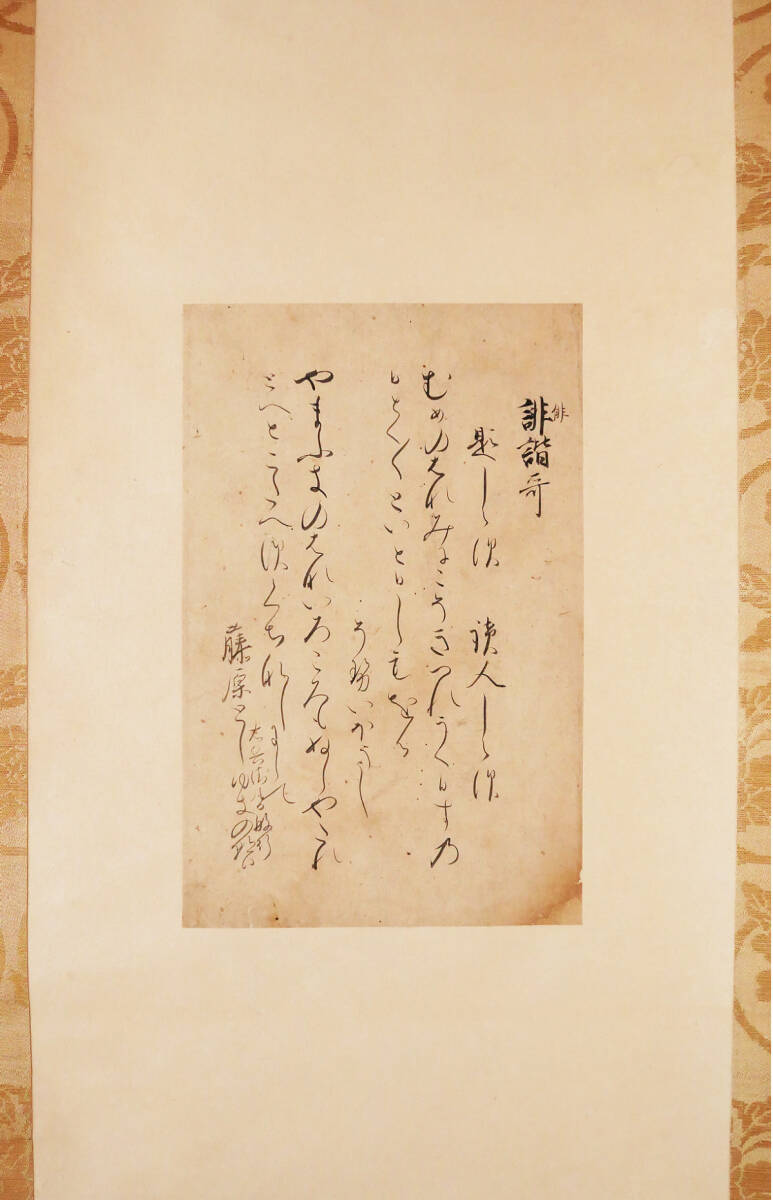 誹諧哥
俳
題しらす　読人しらす
むめのはなみにこそきつれうくひすの
ひとく〱といとひしもをる
そせいほうし
やまふきのはないろころもぬしやたれ
とへとこたへすくちなしにして
藤原としゆきの朝臣